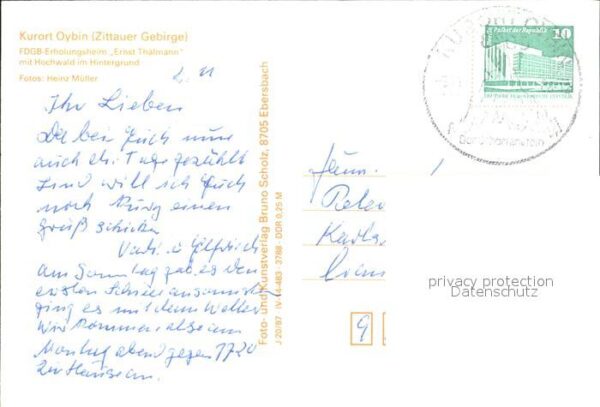 Kurort Oybin (Zittauer Gebirge)
FDGB-Erholungsheim „Ernst Thälmann"
mit Hochwald im Hintergrund
Fotos: Heinz Müller
Ihr Lieben
Da bei Euch nun
auch die Tage gezählt
sind will ich Euch
noch kurz einen
Gruß schicken
am Sonntag gab es den
ersten Schnee ansonsten
ging es mit dem Wetter
Wir kommen also am
Montag abend gegen 17 20
zu Hause an.
Foto- und Kunstverlag Bruno Scholz, 8705 Ebersbach
J 20/87 IV-14-483 3788 DDR 0,25 M
Palast der Republik
10
Fam.
Peter
9
privacy protection
Datenschutz